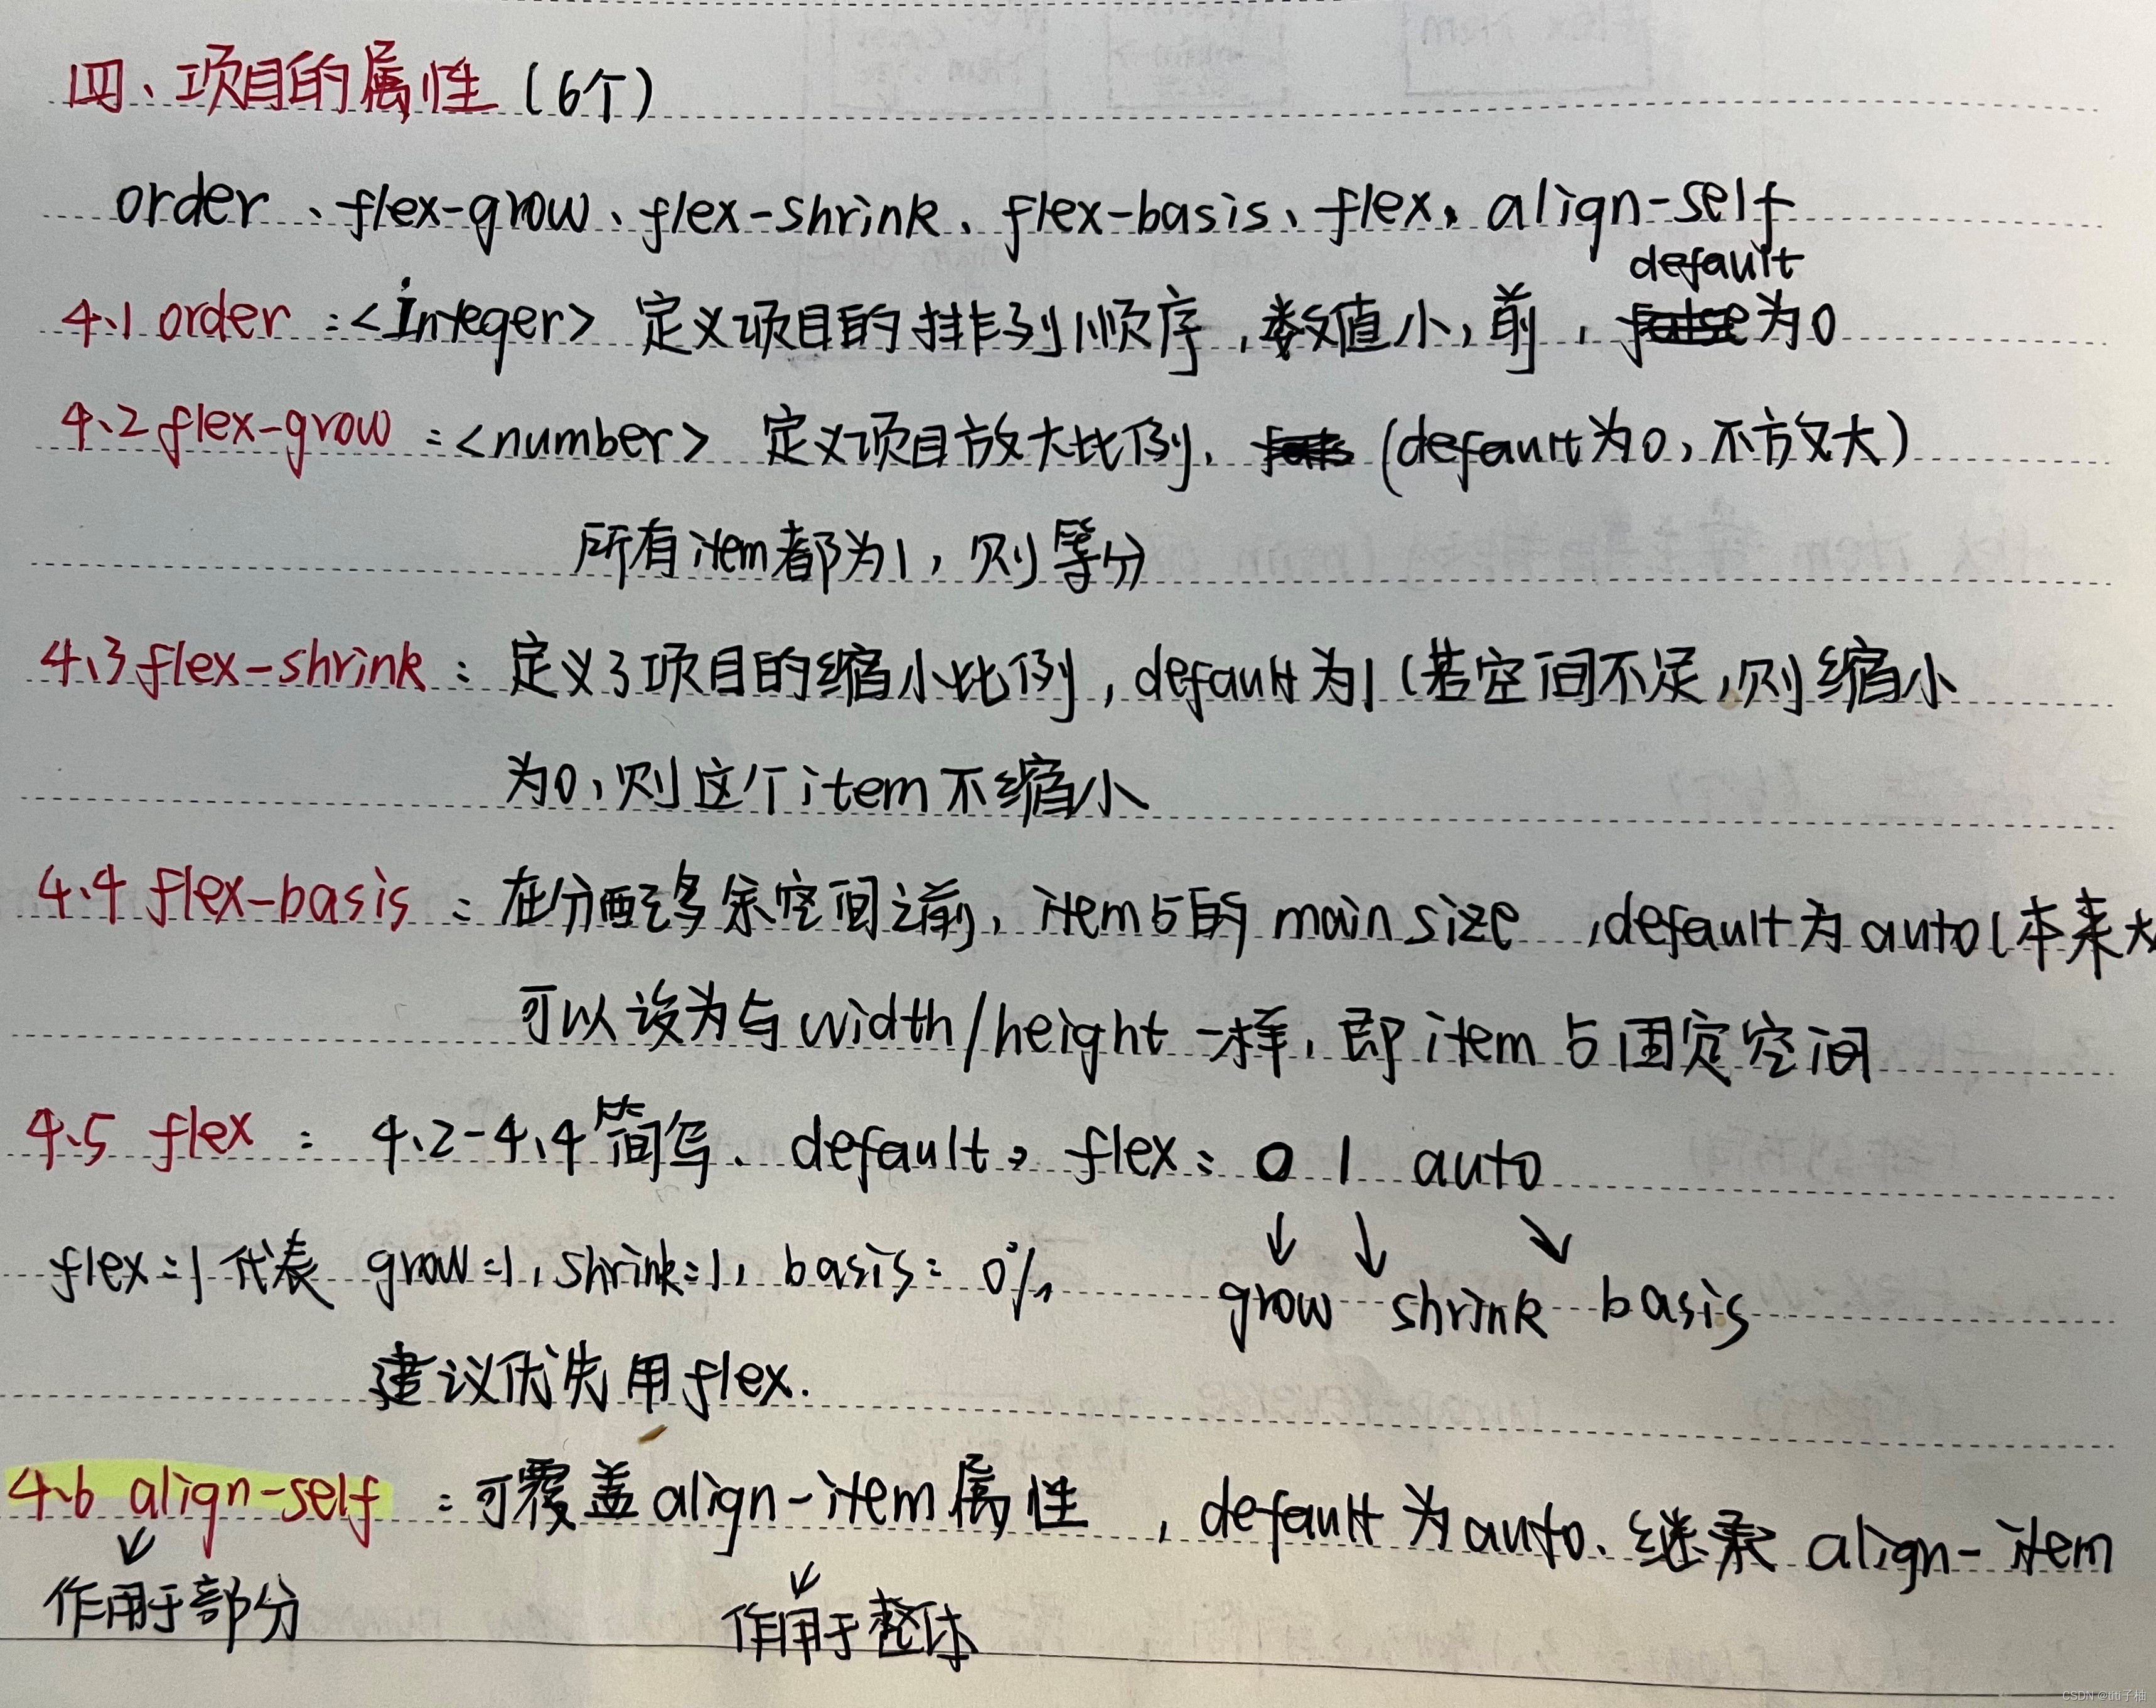 四、项目的属性（6个）
order、flex-grow、flex-shrink、flex-basis、flex、align-self
default
4.1 order：<Integer> 定义项目的排列顺序，数值小，前，为0
4.2 flex-grow：<number> 定义项目放大比例、（default为0，不放大）
所有item都为1，则等分
4.3 flex-shrink：定义了项目的缩小比例，default为1（若空间不足，则缩小
为0，则这个item不缩小
4.4 flex-basis：在分配多余空间之前，item占的 main size ，default为auto（本来大
可以设为与width/height一样，即item占固定空间
4.5 flex：4.2-4.4简写、default，flex：0 1 auto
flex=1代表 grow=1，shrink=1，basis：0%
grow shrink basis
建议优先用flex.
4.6 align-self：可覆盖align-item属性 ，default为auto、继承 align-item
作用于部分 作用于整体
CSDN @titi子柚